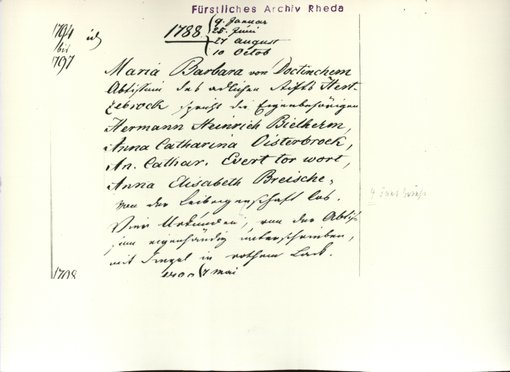 Fürstliches Archiv Rheda
1794 id
bis
1797
1788
9. Januar
25. Juni
27 August
10 Octob
Maria Barbara von Doctinchem
Abtissinn des adlichen Stifts Hert-
zebrock spricht die Eigenbehörigen
Hermann Heinrich Bielherm,
Anna Catharina Oisterbrock,
An. Cathar. Evert tor wort,
Anna Elisabeth Breische,
von der Leibeigenschaft los.
Vier Urkunden, von der Abtis-
sinn eigenhändig unterschrieben,
mit Siegel in rothem Lack.
1798
7 Mai